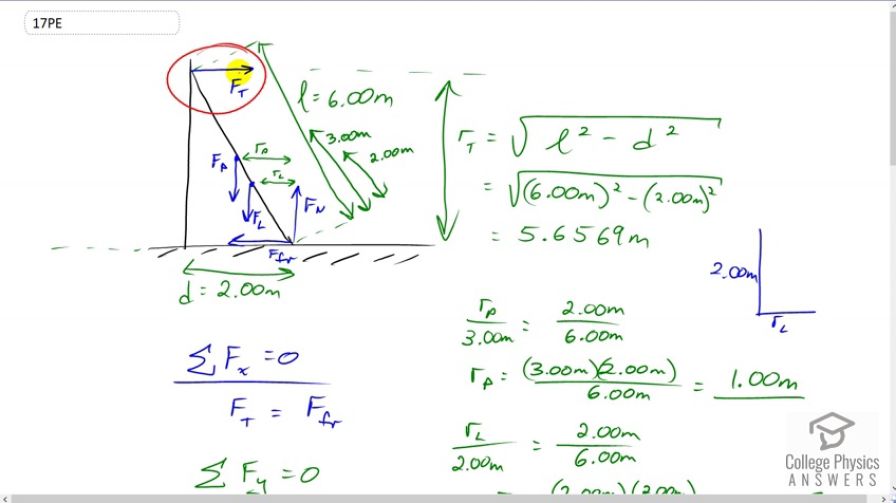 17PE
F_T
l = 6.00m
3.00m
2.00m
F_P
r_P
r_L
F_L
F_N
F_fr
d = 2.00m
r_T = √(l² - d²)
= √((6.00m)² - (2.00m)²)
= 5.6569m
2.00m
r_L
r_P/3.00m = 2.00m/6.00m
r_P = (3.00m)(2.00m)/6.00m = 1.00m
r_L/2.00m = 2.00m/6.00m
= (2.00m)(2.00m)
Σ F_x = 0
F_T = F_fr
Σ F_y = 0
College Physics
ANSWERS